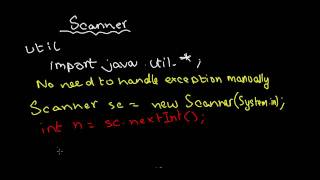 Scanner
util
import java util.*;
No need to handle exception manually
Scanner sc = new Scanner(System.in);
int n = sc.nextInt();